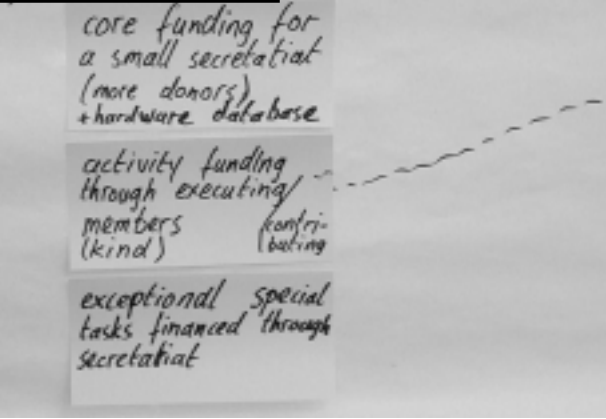 core funding for
a small secretatiat
(more donors)
+hardware database
activity funding
through executing/
members contri-
(kind) buting
exceptional special
tasks financed through
secretatiat